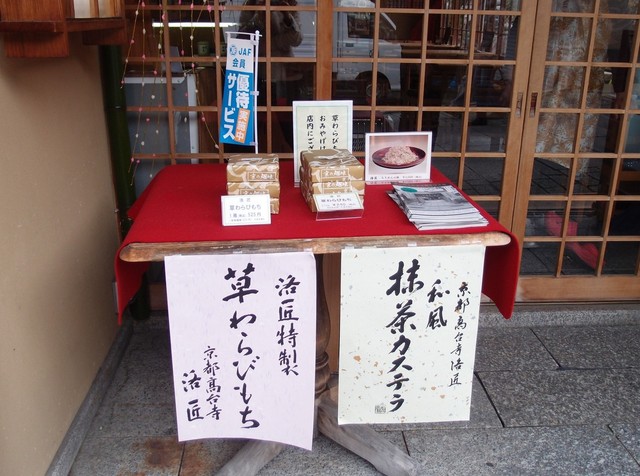 JAF
会員
優待
実施中
サービス
草わらびもち
おみやげ
店内にござ
草わらびもち
草わらびもち
洛匠特製
草わらびもち
京都高台寺
洛匠
京都高台寺洛匠
和風
抹茶カステラ